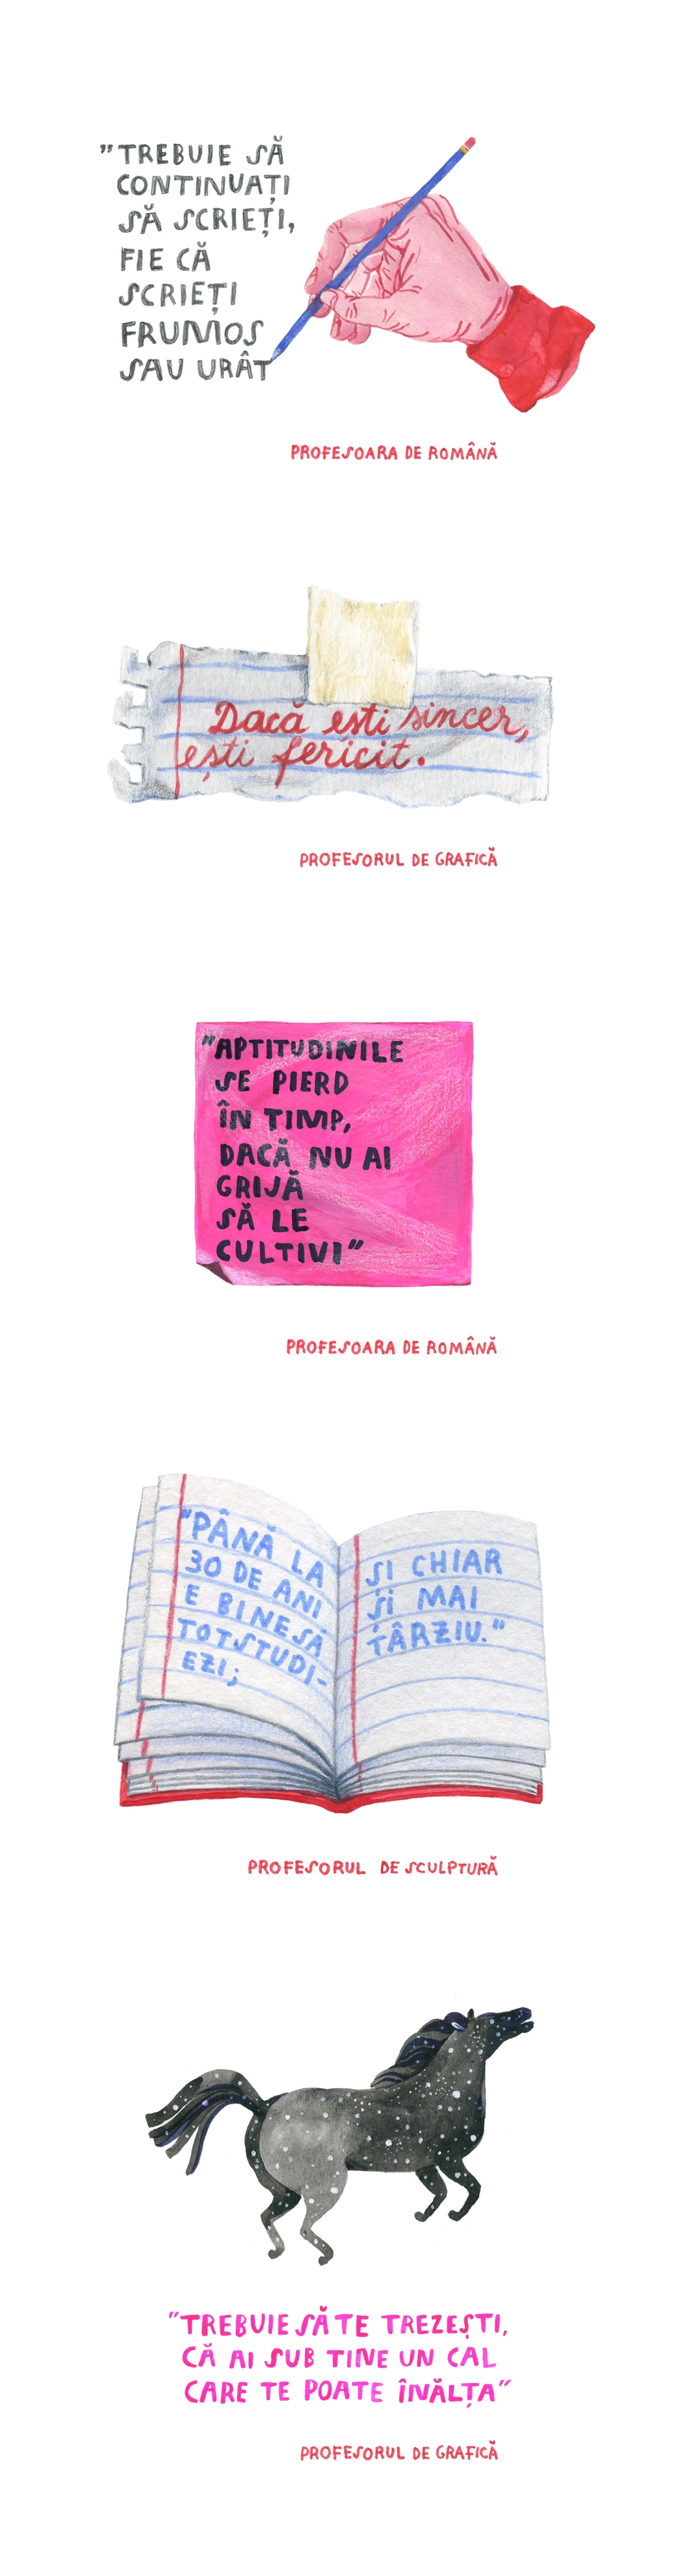 ”TREBUIE SĂ
CONTINUAȚI
SĂ SCRIEȚI,
FIE CĂ
SCRIEȚI
FRUMOS
SAU URÂT
PROFESOARA DE ROMÂNĂ
Dacă esti sincer,
ești fericit.
PROFESORUL DE GRAFICĂ
"APTITUDINILE
SE PIERD
ÎN TIMP,
DACĂ NU AI
GRIJĂ
SĂ LE
CULTIVI"
PROFESOARA DE ROMÂNĂ
"PÂNĂ LA
30 DE ANI
E BINE SĂ
TOT STUDI-
EZI;
SI CHIAR
SI MAI
TÂRZIU."
PROFESORUL DE SCULPTURĂ
"TREBUIE SĂ TE TREZEȘTI,
CĂ AI SUB TINE UN CAL
CARE TE POATE ÎNĂLȚA"
PROFESORUL DE GRAFICĂ